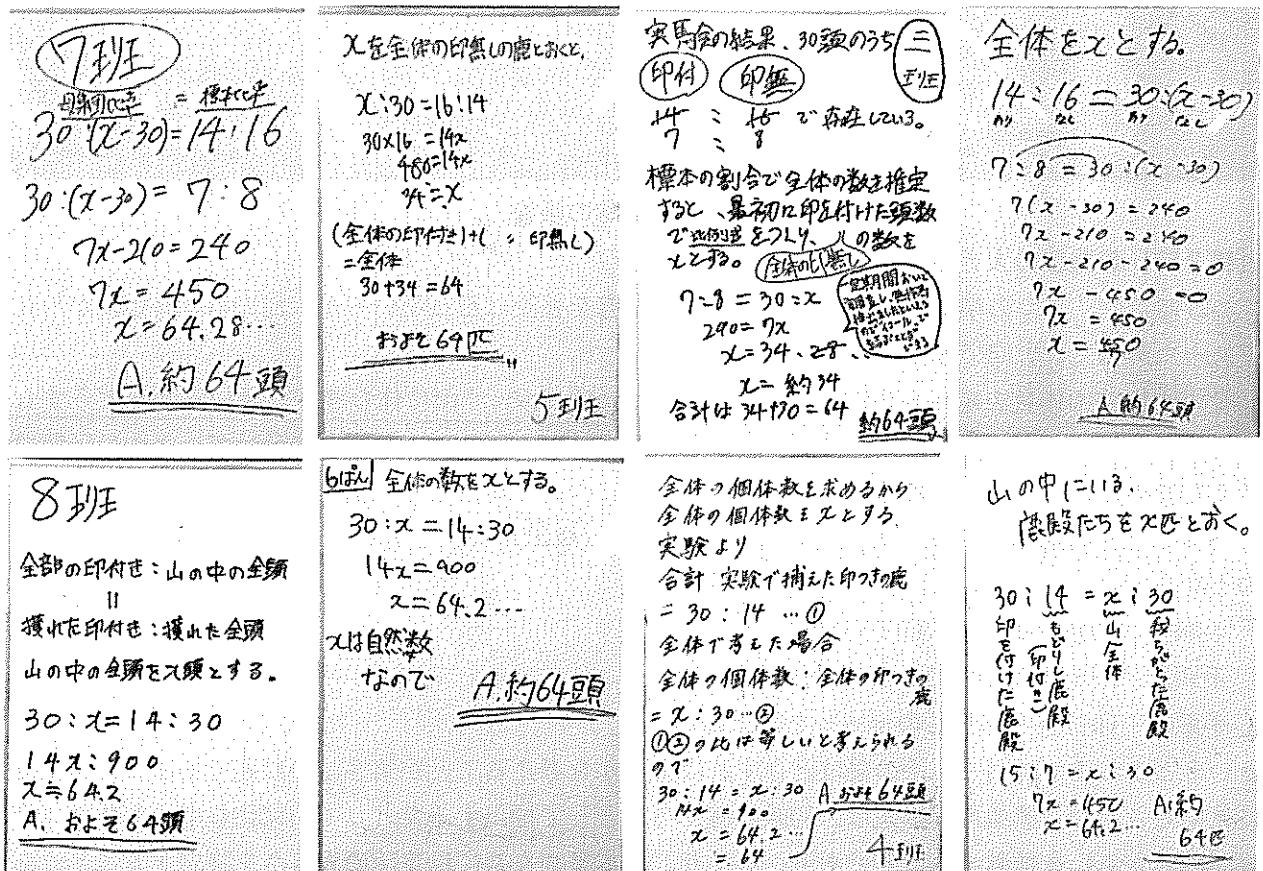 7班
母集団の比率 = 標本比率
30:(x-30)=14:16
30:(x-30)= 7:8
7x-210=240
7x=450
x=64.28…
A.約64頭
xを全体の印無しの鹿とおくと、
x:30=16:14
30×16=14x
480=14x
34≒x
(全体の印付き)+( 〃 印無し)
=全体
30+34=64
およそ64匹
5班
実験の結果、30頭のうち
二班
印付 印無
14 : 16 で存在している。
7 : 8
標本の割合で全体の数を推定
すると、最初に印を付けた頭数
で比例式をつくり、 の数を
xとする。 全体の印無し
7:8=30:x
240=7x
x=34.28…
x=約34
合計は34+30=64
約64頭
全体をxとする。
14:16=30:(x-30)
あり なし あり なし
7:8=30:(x-30)
7(x-30)=240
7x-210=240
7x-210-240=0
7x-450=0
7x=450
x=450/7
A 約64頭
8班
全部の印付き:山の中の全頭
||
獲れた印付き:獲れた全頭
山の中の全頭をx頭とする。
30:x=14:30
14x:900
x≒64.2
A. およそ64頭
6ぱん 全体の数をxとする。
30:x=14:30
14x=900
x=64.2…
xは自然数
なので
A.約64頭
全体の個体数を求めるから
全体の個体数をxとする
実験より
合計:実験で捕えた印つきの鹿
=30:14 …①
全体で考えた場合
全体の個体数:全体の印つきの鹿
=x:30…②
①②の比は等しいと考えられる
ので
30:14=x:30
14x=900
x=64.2…
=64
A およそ64頭
4班
山の中にいる、
鹿殿たちをx匹とおく。
30:14=x:30
印を付けた鹿殿
もどりし鹿殿(印付き)
山全体
我らがとった鹿殿
15:7=x:30
7x=450
x=64.2…
A.約
64匹